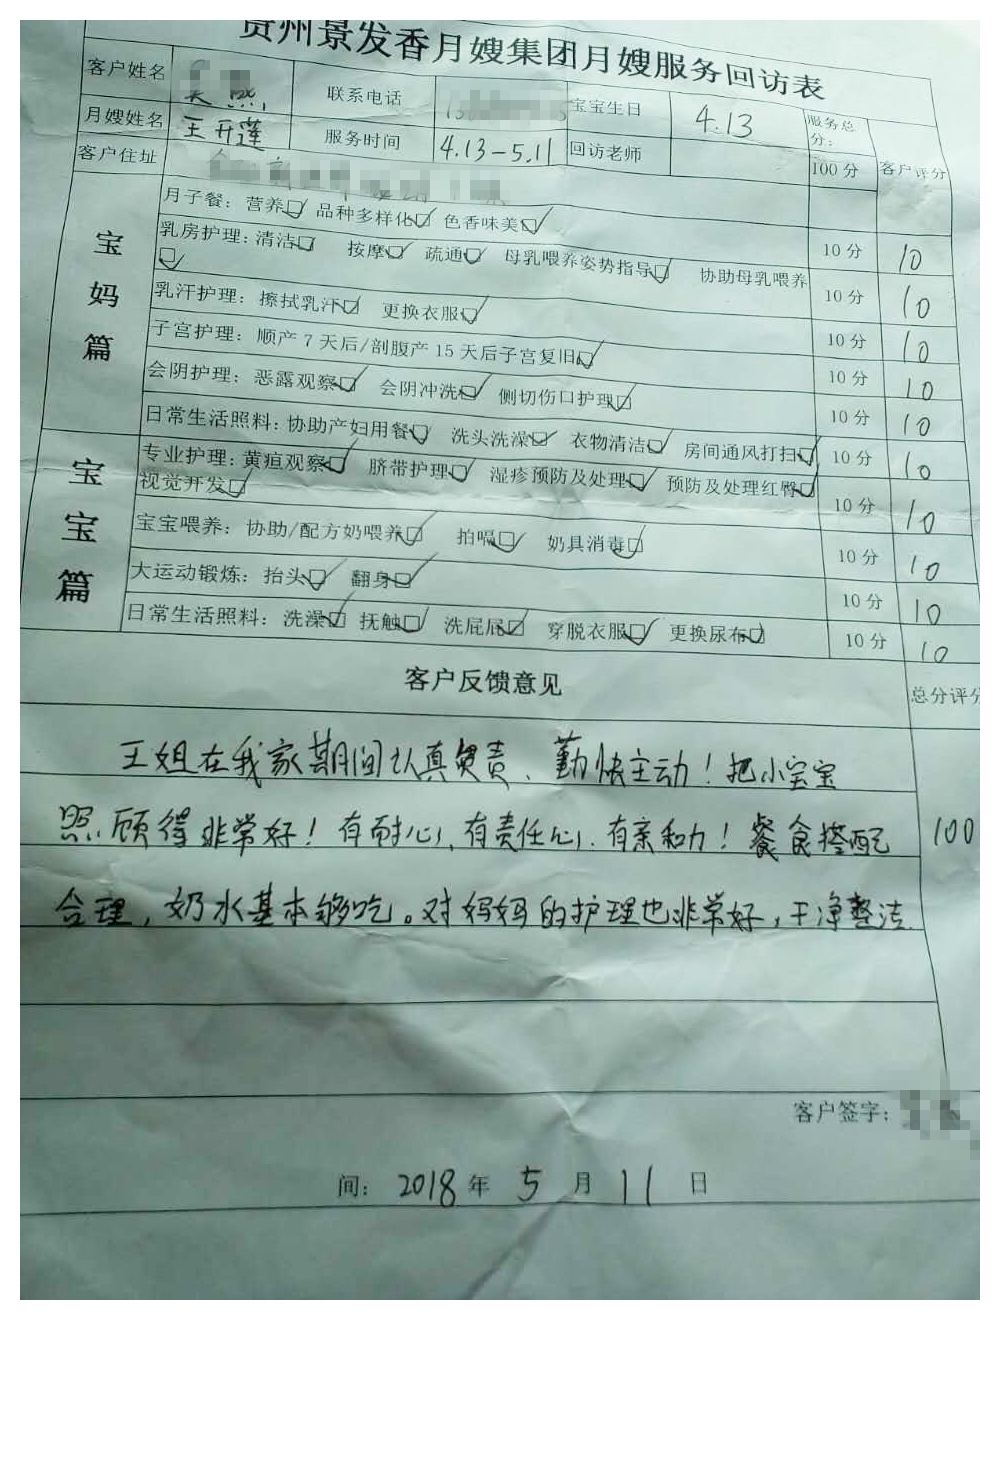 贵州景发香月嫂集团月嫂服务回访表
客户姓名 联系电话 宝宝生日 4.13 服务总分:
月嫂姓名 王开莲 服务时间 4.13-5.11 回访老师 100分 客户评分
客户住址
宝妈篇
月子餐: 营养☑ 品种多样化☑ 色香味美☑ 10分 10
乳房护理: 清洁☑ 按摩☑ 疏通☑ 母乳喂养姿势指导☑ 协助母乳喂养☑ 10分 10
乳汗护理: 擦拭乳汗☑ 更换衣服☑ 10分 10
子宫护理: 顺产7天后/剖腹产15天后子宫复旧☑ 10分 10
会阴护理: 恶露观察☑ 会阴冲洗☑ 侧切伤口护理☑ 10分 10
日常生活照料: 协助产妇用餐☑ 洗头洗澡☑ 衣物清洁☑ 房间通风打扫☑ 10分 10
宝宝篇
专业护理: 黄疸观察☑ 脐带护理☑ 湿疹预防及处理☑ 预防及处理红臀☑
视觉开发☑ 10分 10
宝宝喂养: 协助/配方奶喂养☑ 拍嗝☑ 奶具消毒☑ 10分 10
大运动锻炼: 抬头☑ 翻身☑ 10分 10
日常生活照料: 洗澡☑ 抚触☑ 洗屁屁☑ 穿脱衣服☑ 更换尿布☑ 10分 10
客户反馈意见 总分评分
王姐在我家期间认真负责、勤快主动!把小宝宝
照顾得非常好!有耐心、有责任心、有亲和力!餐食搭配 100
合理,奶水基本够吃。对妈妈的护理也非常好,干净整洁.
客户签字:
间: 2018年 5月 11日